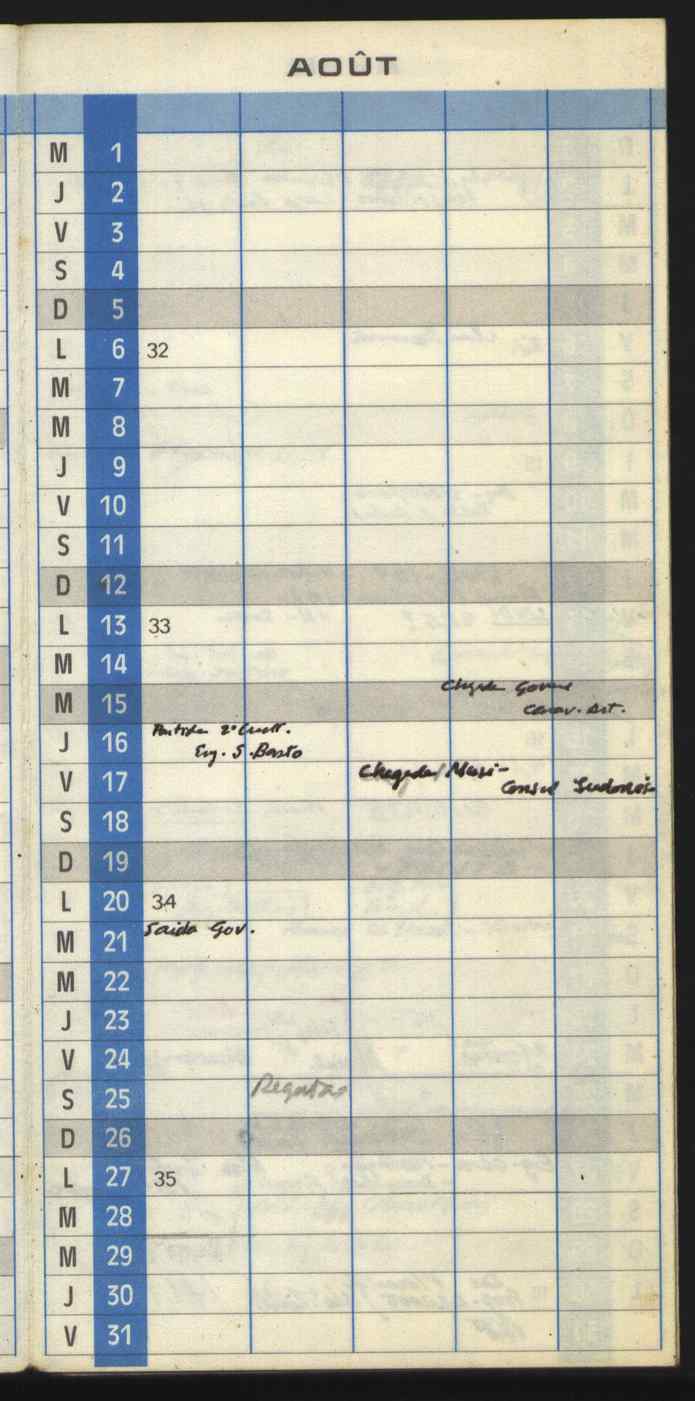 AOÛT
M 1
J 2
V 3
S 4
D 5
L 6 32
M 7
M 8
J 9
V 10
S 11
D 12
L 13 33
M 14
Chegada
M 15
Conv. Art.
J 16 Partida 2º
Eng. S. Basto
V 17 Chegada
Consul
S 18
D 19
L 20 34
M 21 Saida Gov.
M 22
J 23
V 24
S 25 Regatas
D 26
L 27 35
M 28
M 29
J 30
V 31